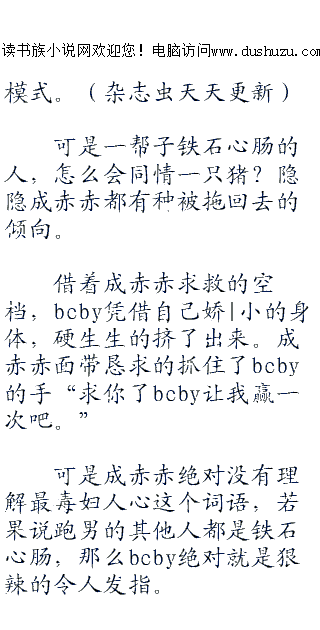 读书族小说网欢迎您！电脑访问www.dushuzu.com
模式。（杂志虫天天更新）
可是一帮子铁石心肠的
人，怎么会同情一只猪？隐
隐成赤赤都有种被拖回去的
倾向。
借着成赤赤求救的空
档，bcby凭借自己娇|小的身
体，硬生生的挤了出来。成
赤赤面带恳求的抓住了bcby
的手“求你了bcby让我赢一
次吧。”
可是成赤赤绝对没有理
解最毒妇人心这个词语，若
果说跑男的其他人都是铁石
心肠，那么bcby绝对就是狠
辣的令人发指。